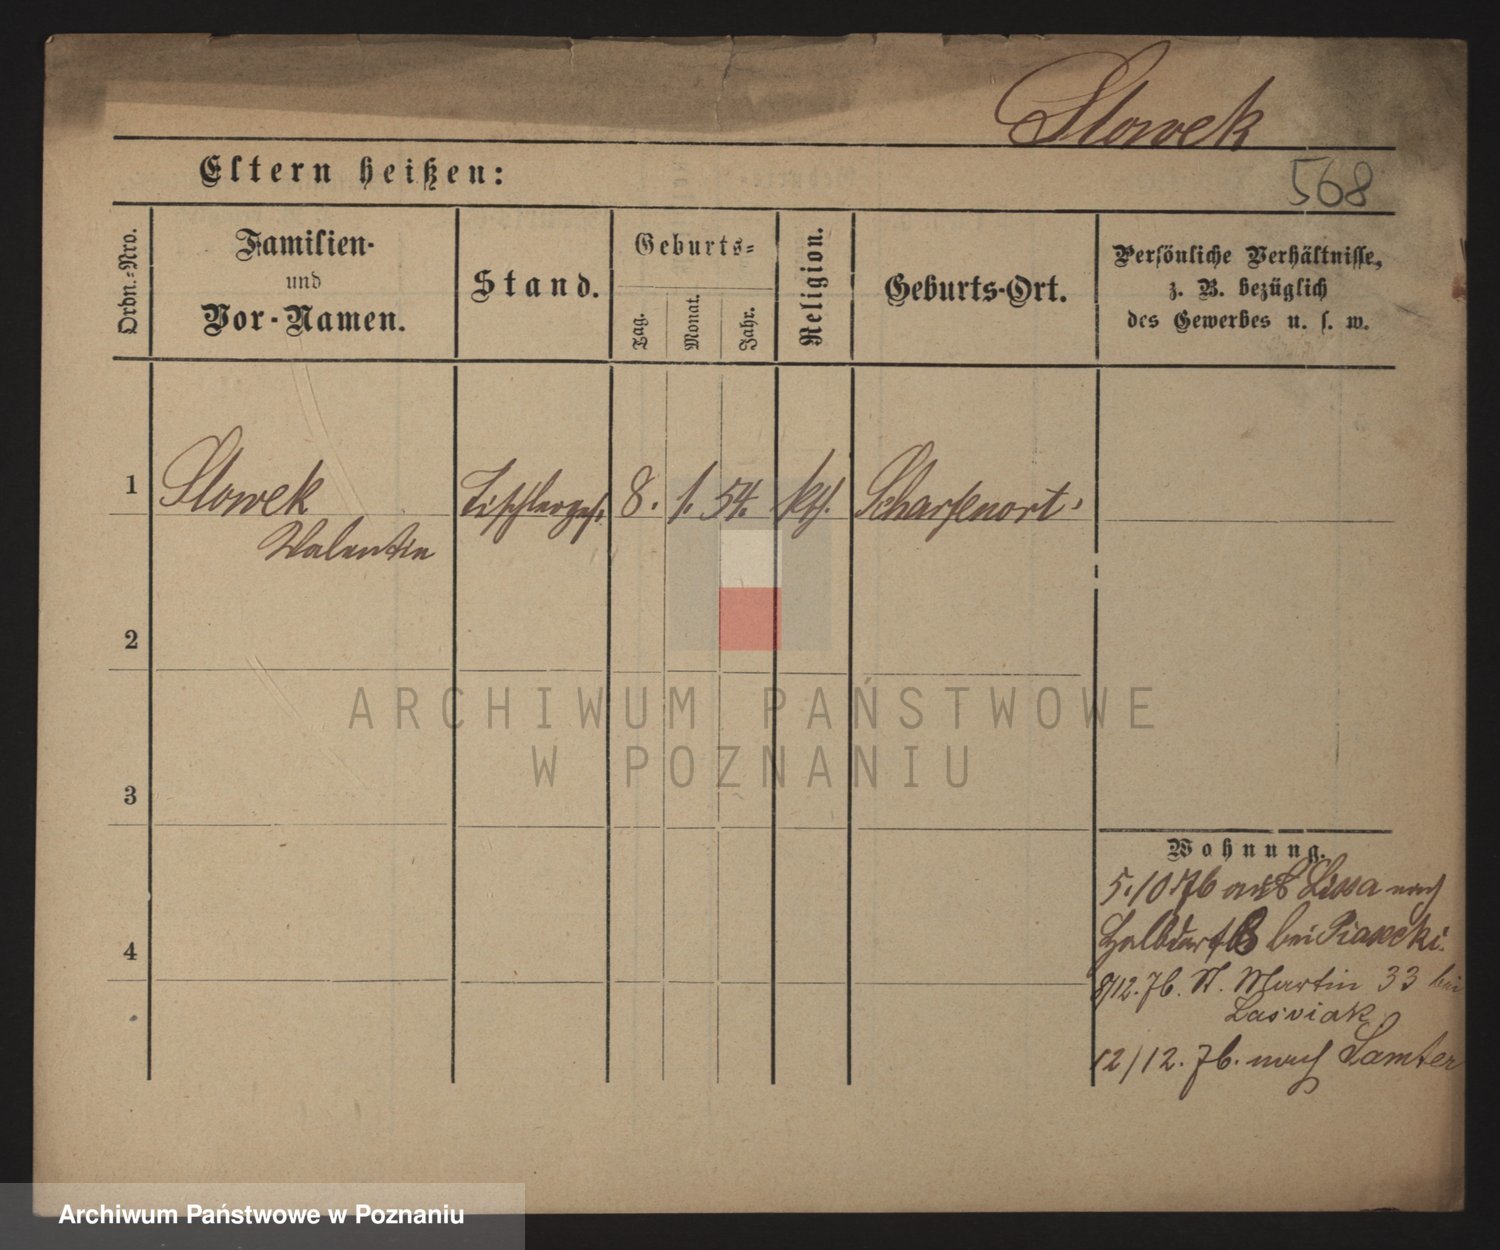 Slowek
Eltern heißen:
568
Ordn.-Nro.
Familien-
und
Vor-Namen.
Stand.
Geburts-
Tag.
Monat.
Jahr.
Religion.
Geburts-Ort.
Persönliche Verhältnisse,
z. B. bezüglich
des Gewerbes u. s. w.
1
Slowek
Valentin
Tischlerges.
8.
1.
54.
kth.
Scharfenort
2
3
4
Wohnung.
5.10 76 aus Lissa nach
Halbdorf 8 bei Piasecki.
8/12.76. St. Martin 33 bei
12/12.76. nach Samter
ARCHIWUM PAŃSTWOWE
W POZNANIU
Archiwum Państwowe w Poznaniu